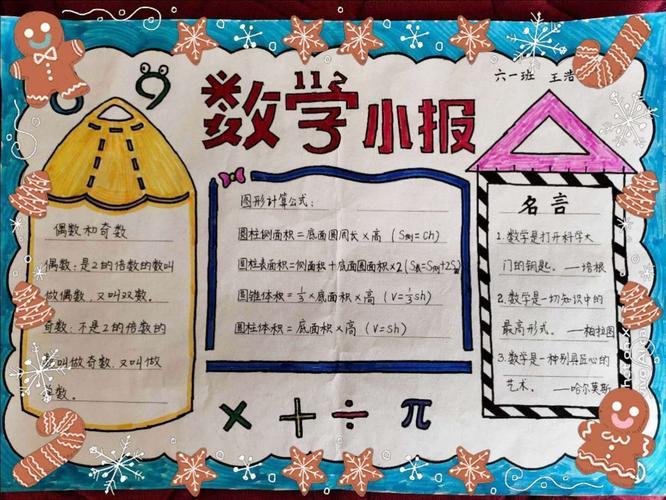 六一班 王浩
数学小报
偶数和奇数
偶数:是2的倍数的数叫
做偶数,又叫双数。
奇数:不是2的倍数的
叫做奇数,又叫做
单数。
图形计算公式:
圆柱侧面积=底面圆周长×高(S侧=Ch)
圆柱表面积=侧面积+底面圆面积×2(S表=S侧+2S
圆锥体积=1/3×底面积×高(V=1/3sh)
圆柱体积=底面积×高(V=sh)
名言
1.数学是打开科学大
门的钥匙。—培根
2.数学是一切知识中的
最高形式。—柏拉图
3.数学是一种别具匠心的
艺术。—哈尔莫斯
× + ÷ π